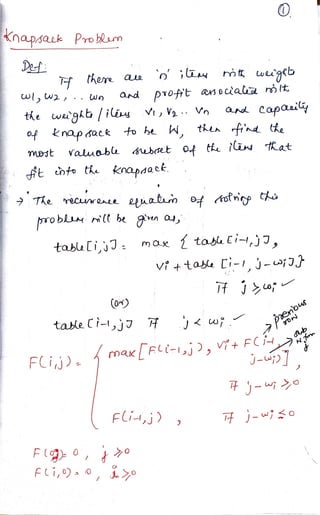 ①
Knapsack Problem
Def:
If there are 'n' items with weights
w1, w2, .. wn and profit associated with
the weights / items V1, V2.. Vn and capacity
of knapsack to be W, then find the
most valuable subset of the items that
fit into the knapsack.
→ The recurrence equation of solving this
problem will be given as,
table[i,j] = max { table [i-1,j],
vi + table [i-1, j-wi]}
if j ≥ wi
(or)
table [i-1,j] if j < wi
previous
row
F(i,j) = { max[F(i-1,j), vi + F(i-1,
j-wi)],
if j-wi ≥ 0
F(i-1,j) , if j-wi ≤ 0
F(0,j) = 0, j ≥ 0
F(i,0) = 0, i ≥ 0